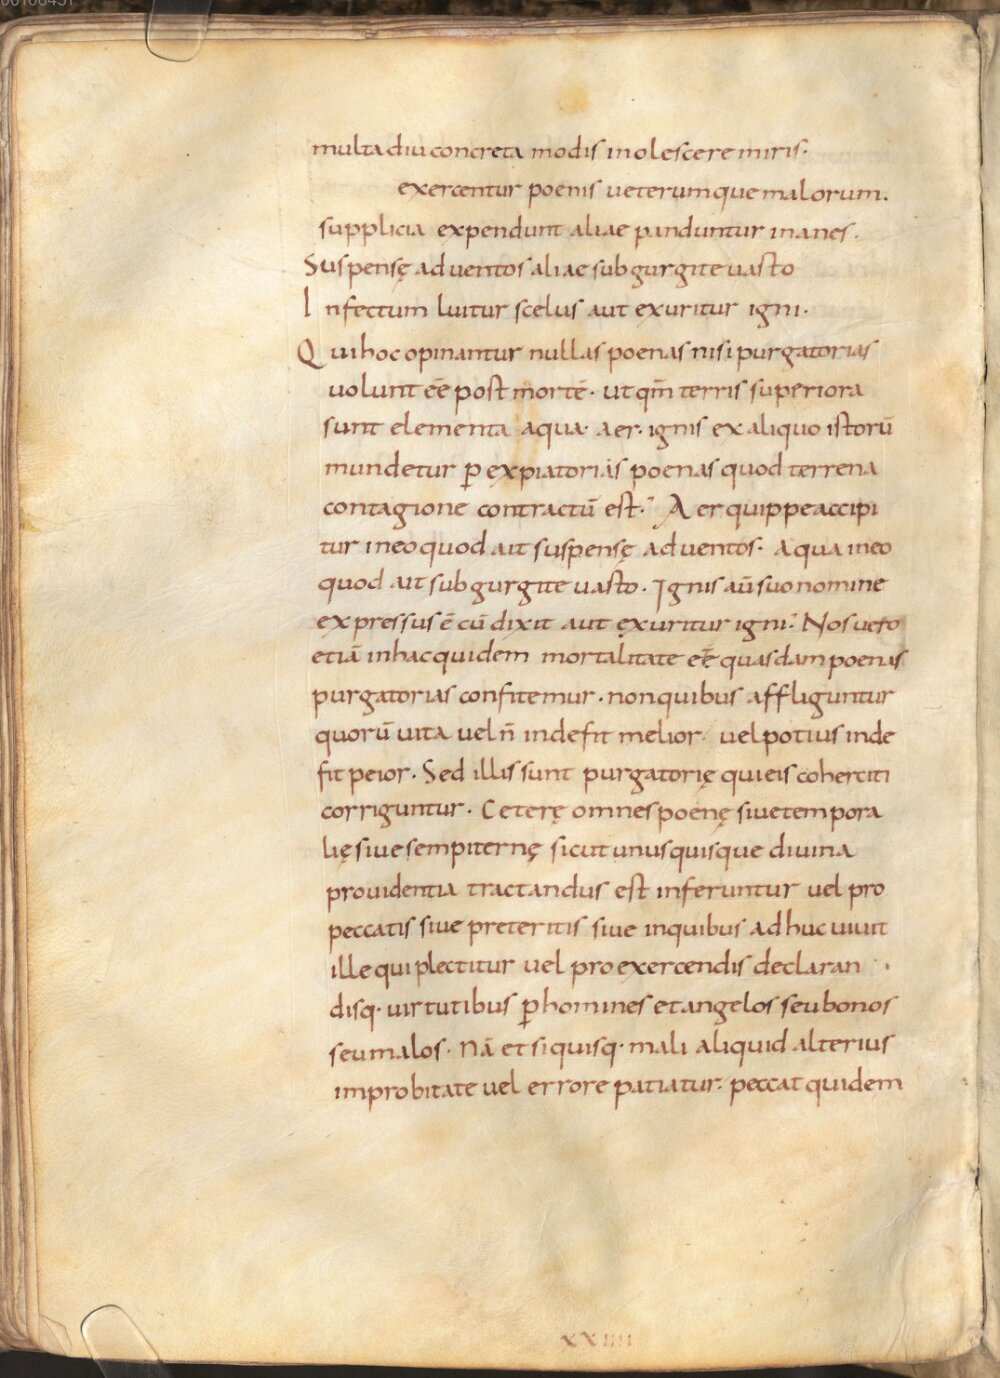 multa diu concreta modis inolescere miris·
exercentur poenis ueterumque malorum.
supplicia expendunt aliae panduntur inanes.
Suspensę ad uentos aliae sub gurgite uasto
Infectum luitur scelus aut exuritur igni·
Qui hoc opinantur nullas poenas nisi purgatorias
uolunt eē post mortē· ut qm̄ terris superiora
sunt elementa aqua· aer· ignis ex aliquo istorū
mundetur ꝑ expiatorias poenas quod terrena
contagione contractū est· Aer quippe accipi
tur in eo quod ait suspensę ad uentos· aqua in eo
quod ait sub gurgite uasto. Ignis aū suo nomine
expressus ē cū dixit aut exuritur igni· Nos uero
etiā in hac quidem mortalitate eē quasdam poenas
purgatorias confitemur· non quibus affliguntur
quorū uita uel n̄ inde fit melior· uel potius inde
fit peior. Sed illis sunt purgatorię qui eis coherciti
corriguntur. Ceterę omnes poenę siue tempora
lię siue sempiternę sicut unusquisque diuina
prouidentia tractandus est inferuntur uel pro
peccatis siue preteritis siue in quibus adhuc uiuit
ille qui plectitur uel pro exercendis declaran
disq· uirtutibus ꝑ homines et angelos seu bonos
seu malos· Nā et si quisq· mali aliquid alterius
improbitate uel errore patiatur· peccat quidem
XXIIII